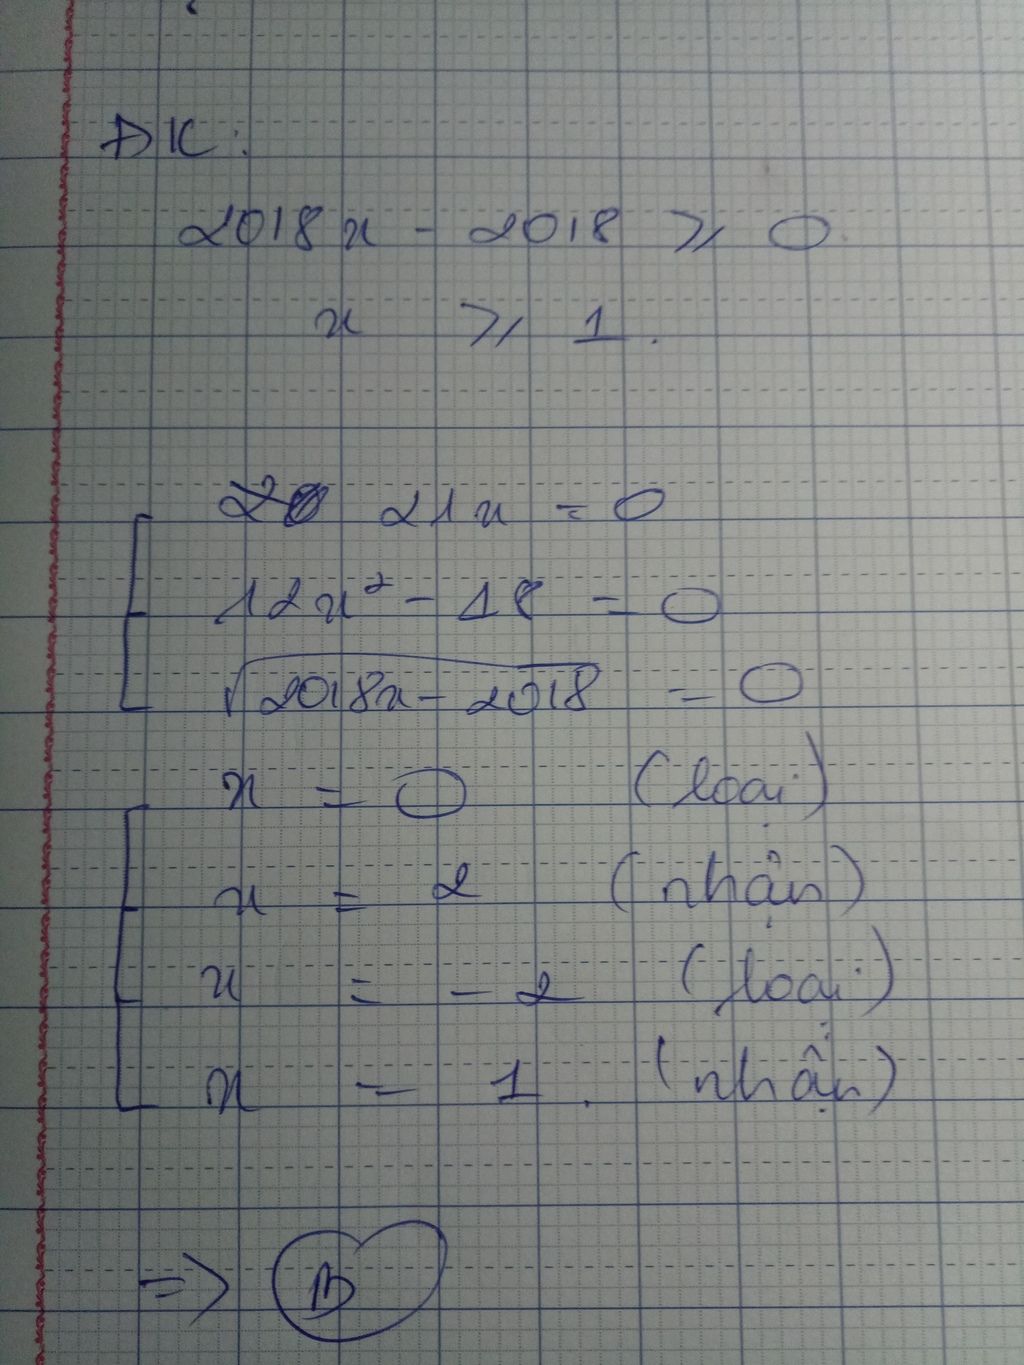 ĐK:
2018x - 2018 ≥ 0
x ≥ 1.
21x = 0
12x² - 18 = 0
√2018x - 2018 = 0
x = 0 (loại)
x = 2 (nhận)
x = -2 (loại)
x = 1. (nhận)
=> B